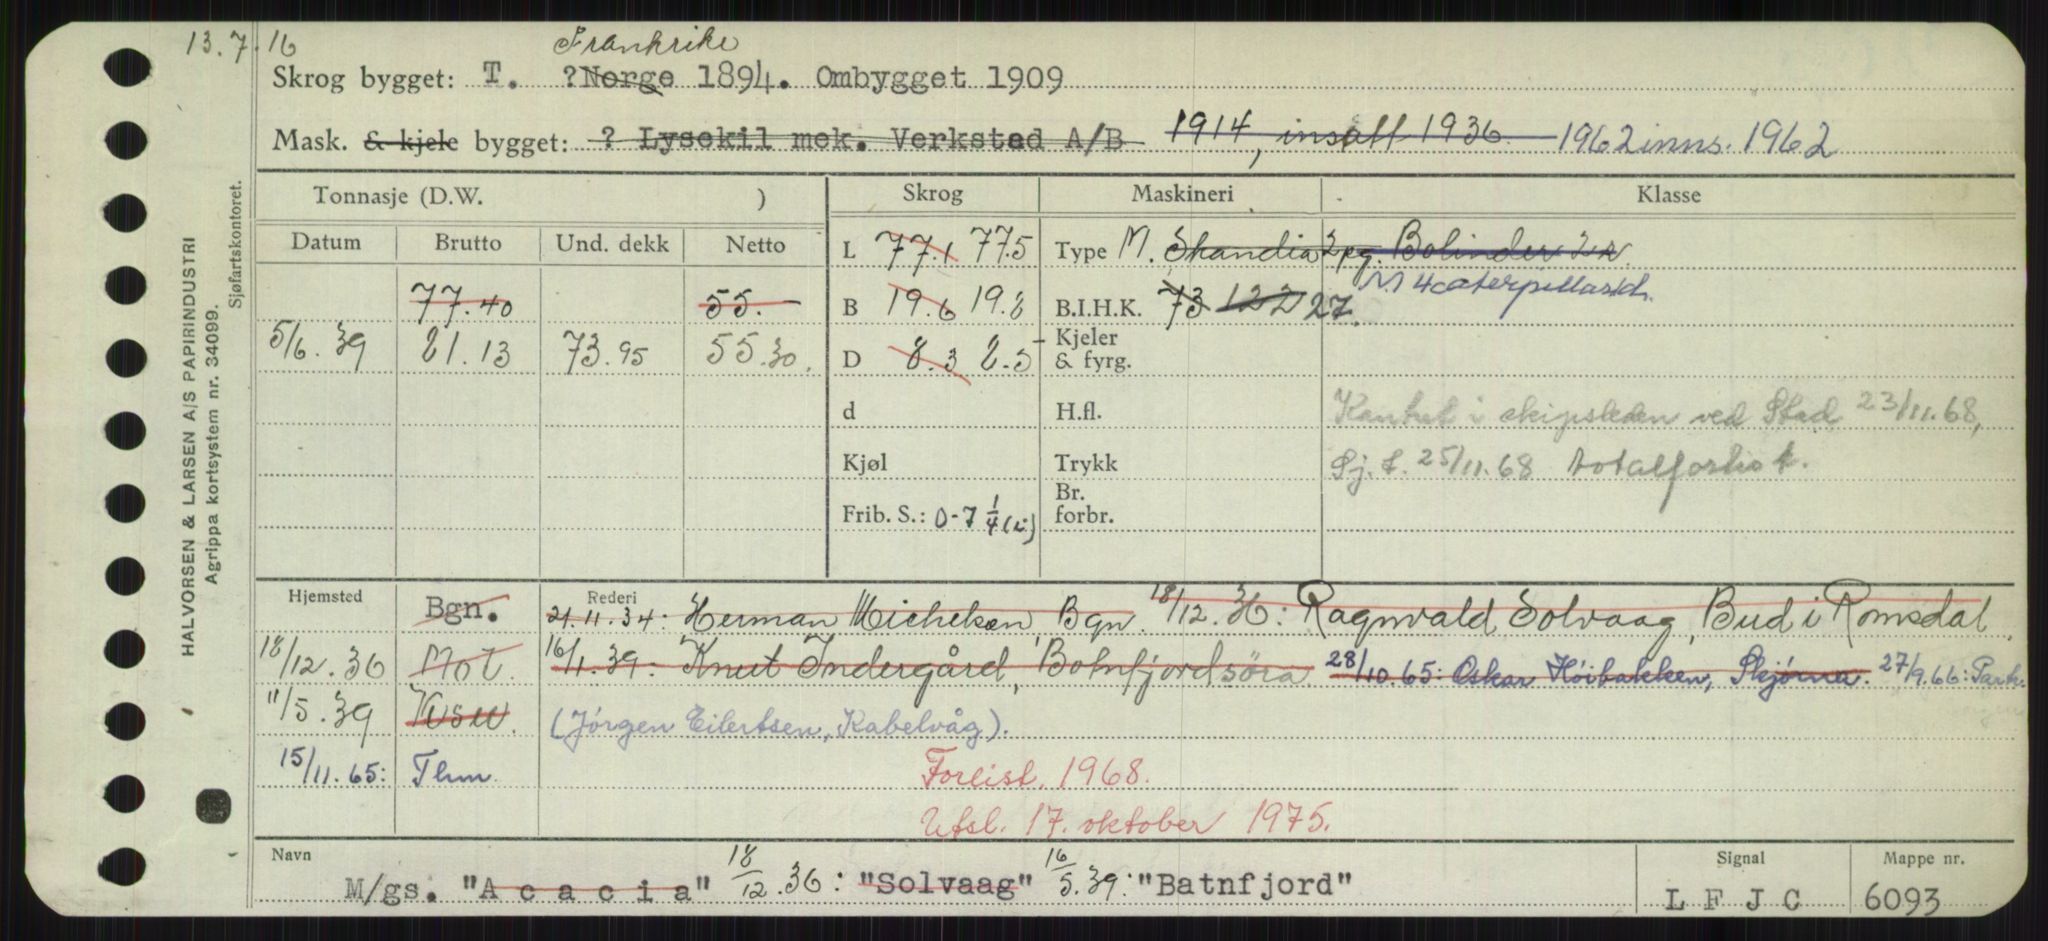 13.7.16
Frankrike
Skrog bygget: T. ?Norge 1894. Ombygget 1909
Mask. & kjele bygget: ? Lysekil mek. Verksted A/B 1914, insatt 1936 1962 inns. 1962
HALVORSEN & LARSEN A/S PAPIRINDUSTRI
Agrippa kortsystem nr. 34099.
Sjøfartskontoret.
Tonnasje (D.W. ) Skrog Maskineri Klasse
Datum Brutto Und. dekk Netto L 77.1 77.5 Type M. Skandia 2 pg. Bolinder 2
M 4 caterpillar
77.40 55.- B 19.6 19.8 B.I.H.K. 73 122 27.
5/6.39 81.13 73.95 55.30. D 8.3 8.5 Kjeler & fyrg.
d H.fl. Kantret i skipsleden ved Stad 23/11.68,
Kjøl Trykk Sj. t. 25/11.68 totalforlist.
Frib. S.: 0-7 1/4 (i) Br. forbr.
Hjemsted Bgn. Rederi 21.11.34: Herman Michelsen Bgn. 18/12.36: Ragnvald Solvaag, Bud i Romsdal.
18/12.36 Mol. 16/1.39: Knut Indergård, Botnfjordsöra. 28/10.65: Oskar Höibakken, Skjørna. 27/9.66: Partr.
11/5.39 Ksu. (Jörgen Eilertsen, Kabelvåg).
15/11.65: Thm. Forlist. 1968.
Utsl. 17. oktober 1975.
Navn Signal Mappe nr.
M/gs. "Acacia" 18/12.36: "Solvaag" 16/5.39: "Batnfjord" L F J C 6093